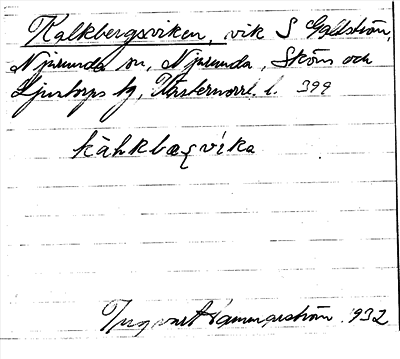 Kalkbergsviken, vik S Galtström,
Njurunda sn, Njurunda, Sköns och
Ljustorps tg, Västernorrl. l. 399
kàhkbæȩvika
Ingvart Hammarström 1932